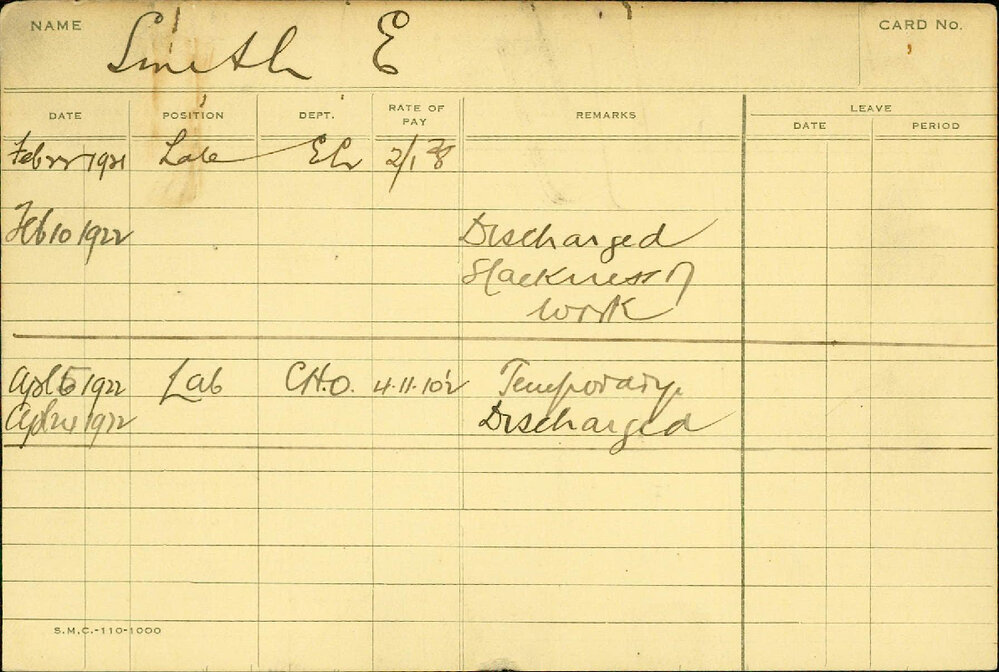 NAME Smith E CARD No.
DATE POSITION DEPT. RATE OF PAY REMARKS LEAVE
DATE PERIOD
Feb 22 1921 Lab El 2/1
Feb 10 1922 Discharged
Slackness of
work
Apl 5 1922 Lab C.H.O. 4.11.10½ Temporary.
Apl 24 1922 Discharged
S.M.C.-110-1000